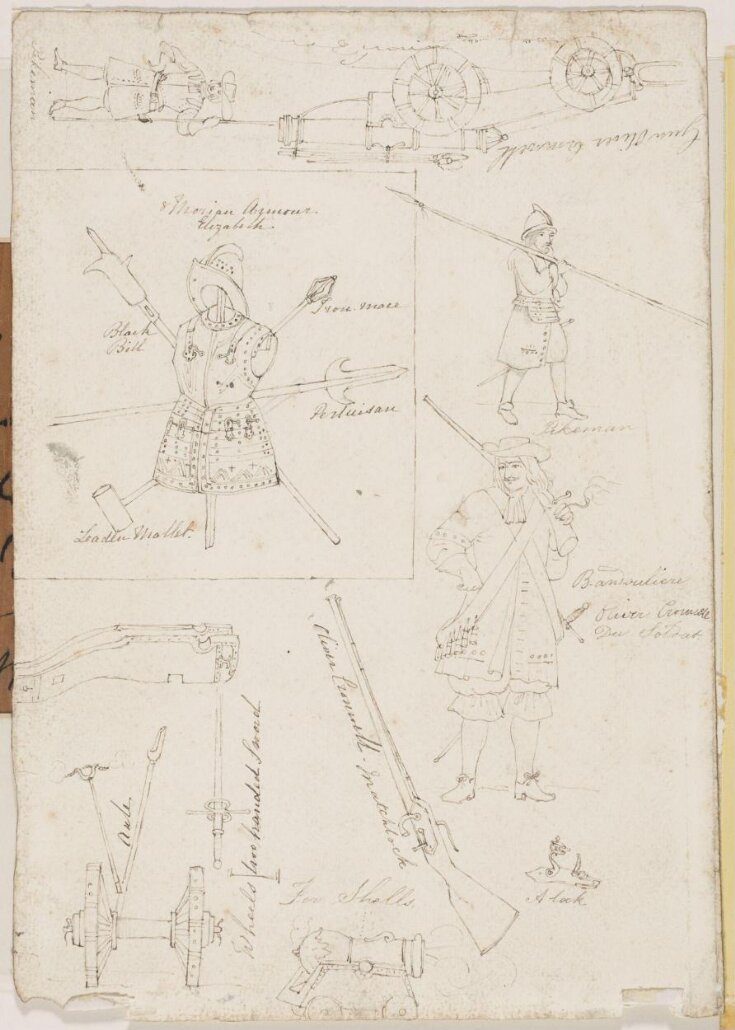 Pikeman
Gun Oliver Cromwell
Morian Armour
Elizabeth.
Iron mace
Black
Bill
Partuisan
Leaden Mallet.
Pikeman
Bandouliere
Oliver Cromwell
Du Soldat
Oliver Cromwell Matchlock
two handed Sword
Axle
Wheels
For Shells
A lock